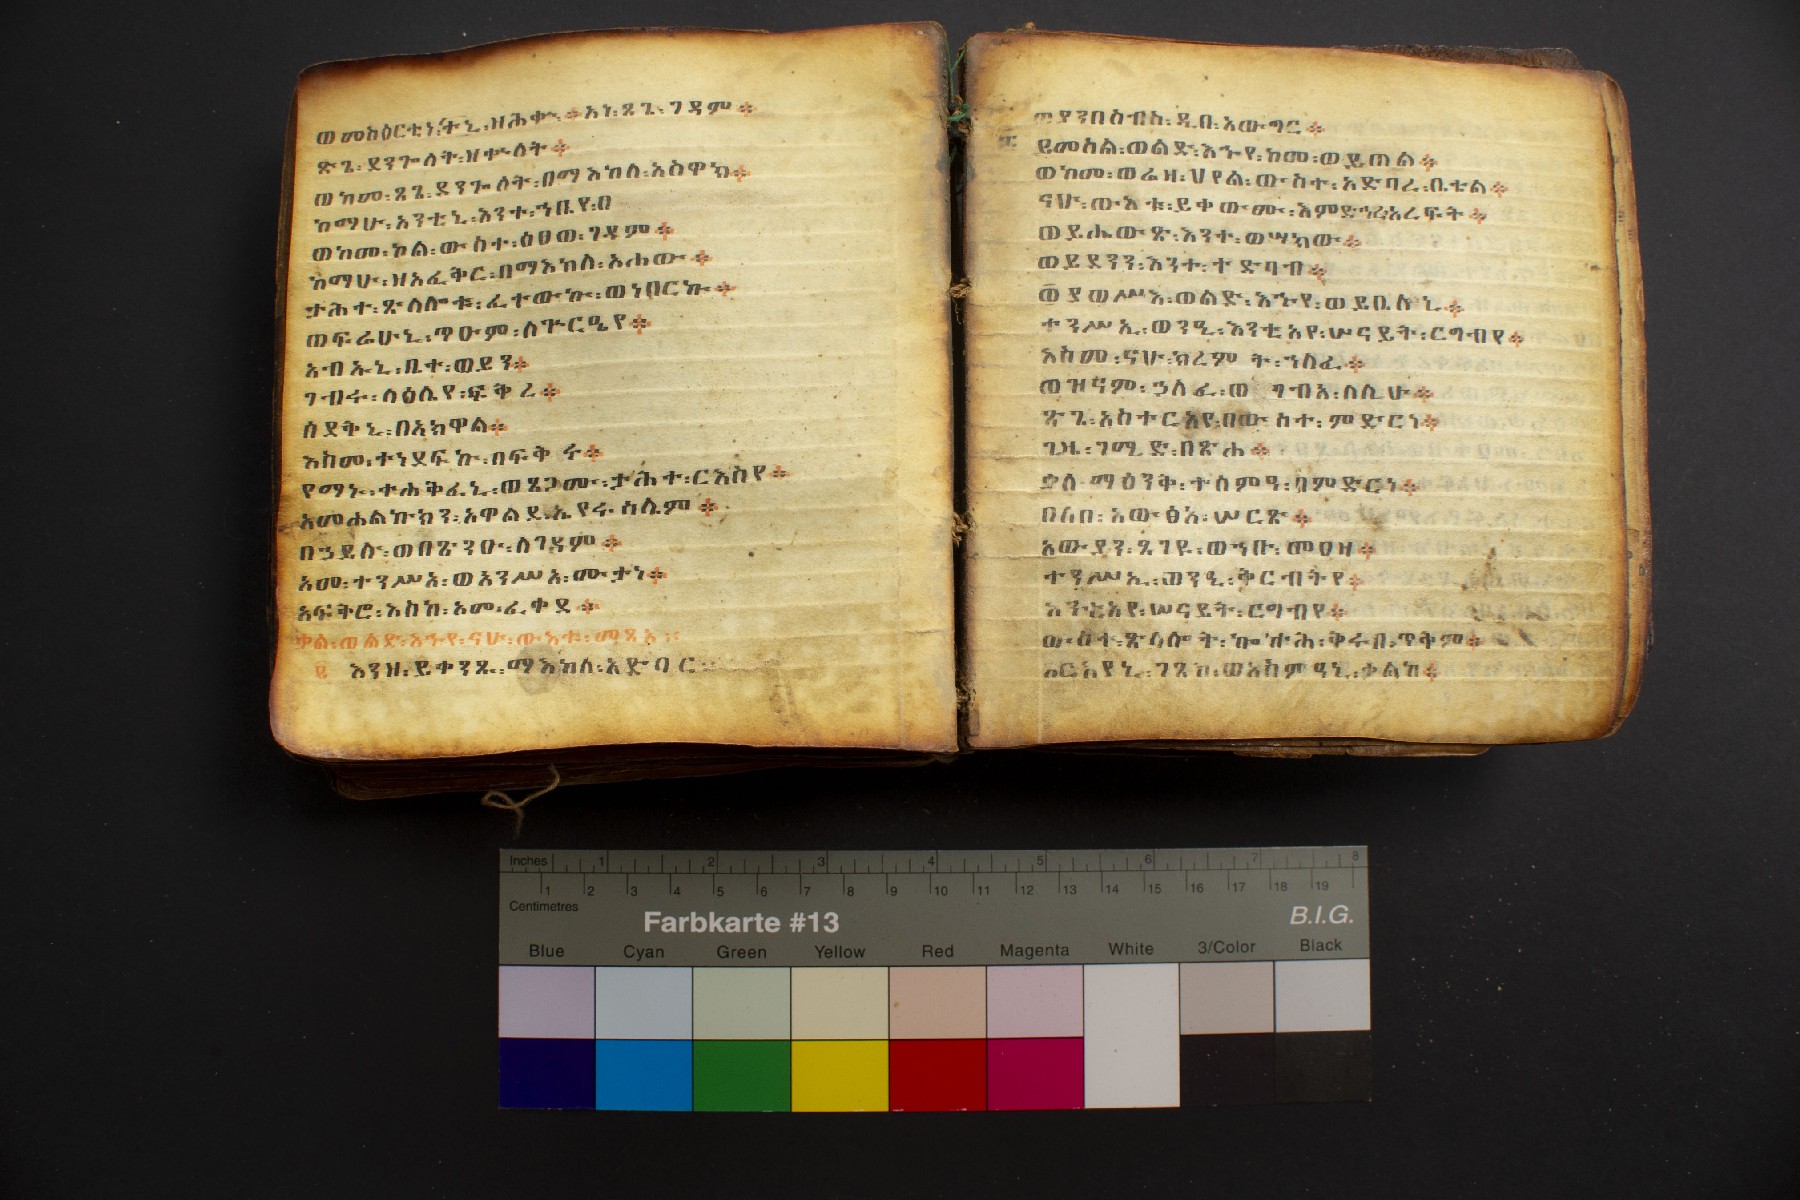 ወመሰዕርቲነ፡ ዝሕቀ፡ ፨ አነ፡ ጸጌ፡ ገዳም ፨
ጽጌ፡ ደንጐላት፡ ዘቈላት ፨
ወከመ፡ ጸጌ፡ ደንጐላት፡ በማእከለ፡ አስዋክ ፨
ከማሁ፡ አንቲኒ፡ እንተ፡ ኀቤየ፡
ወከመ፡ ኮል፡ ውስተ፡ ዕፀወ፡ ገዳም ፨
ከማሁ፡ ዘአፈቅር፡ በማእከለ፡ አሐው ፨
ታሕተ፡ ጽላሎቱ፡ ፈተውኩ፡ ወነበርኩ ፨
ወፍሬሁኒ፡ ጥዑም፡ ለጕርዔየ ፨
አብኡኒ፡ ቤተ፡ ወይን ፨
ገብሩ፡ ላዕሌየ፡ ፍቅረ ፨
ሰደቅኒ፡ በአክዋል ፨
እስመ፡ ተነደፍኩ፡ በፍቅሩ ፨
የማኑ፡ ተሐቅፈኒ፡ ወጸጋሙ፡ ታሕተ፡ ርእስየ ፨
አመሐልኩክን፡ አዋልደ፡ ኢየሩሳሌም ፨
በኃይሉ፡ ወበጽንዑ፡ ለገዳም ፨
አመ፡ ተንሥአ፡ ወአንሥአ፡ ሙታነ ፨
አፍቅሮ፡ እስከ፡ አመ፡ ፈቀደ ፨
ቃል፡ ወልድ፡ እኅየ፡ ናሁ፡ ውእቱ፡ መጽአ ፨
እንዘ፡ ይቀንጽ፡ ማእከለ፡ አድባር
ወያንበስብስ፡ ዲበ፡ አውግር ፨
ይመስል፡ ወልድ፡ እኅየ፡ ከመ፡ ወይጠል ፨
ወከመ፡ ወሬዛ፡ ሀየል፡ ውስተ፡ አድባረ፡ ቤቴል ፨
ናሁ፡ ውእቱ፡ ይቀውሙ፡ እምድኅረ፡ አረፍት ፨
ወይሔውጽ፡ እንተ፡ ወሣክው ፨
ወይደንን፡ እንተ፡ ተድባብ ፨
ወያወሥእ፡ ወልድ፡ እኅየ፡ ወይቤለኒ ፨
ተንሥኢ፡ ወንዒ፡ እንቲአየ፡ ሠናይት፡ ርግብየ ፨
እስመ፡ ናሁ፡ ክረምት፡ ኀለፈ ፨
ወዝናም፡ ኃለፈ፡ ወገብአ፡ ለሊሁ ፨
ጽጌ፡ አስተርአየ፡ በውስተ፡ ምድርነ ፨
ጊዜ፡ ገሚድ፡ በጽሐ ፨
ቃለ፡ ማዕንቅ፡ ተሰምዓ፡ በምድርነ ፨
በለስ፡ አውፅአ፡ ሠርጸ ፨
አውያን፡ ጸገዩ፡ ወኀቡ፡ መዐዛ ፨
ተንሥኢ፡ ወንዒ፡ ቅርብትየ ፨
እንቲአየ፡ ሠናይት፡ ርግብየ ፨
ውስተ፡ ጽላሎት፡ ቅሩበ፡ ጥቅም ፨
አርእየኒ፡ ገጸኪ፡ ወአስምዓኒ፡ ቃልኪ ፨
Inches 1 2 3 4 5 6 7 8
1 2 3 4 5 6 7 8 9 10 11 12 13 14 15 16 17 18 19
Centimetres
Farbkarte #13 B.I.G.
Blue Cyan Green Yellow Red Magenta White 3/Color Black